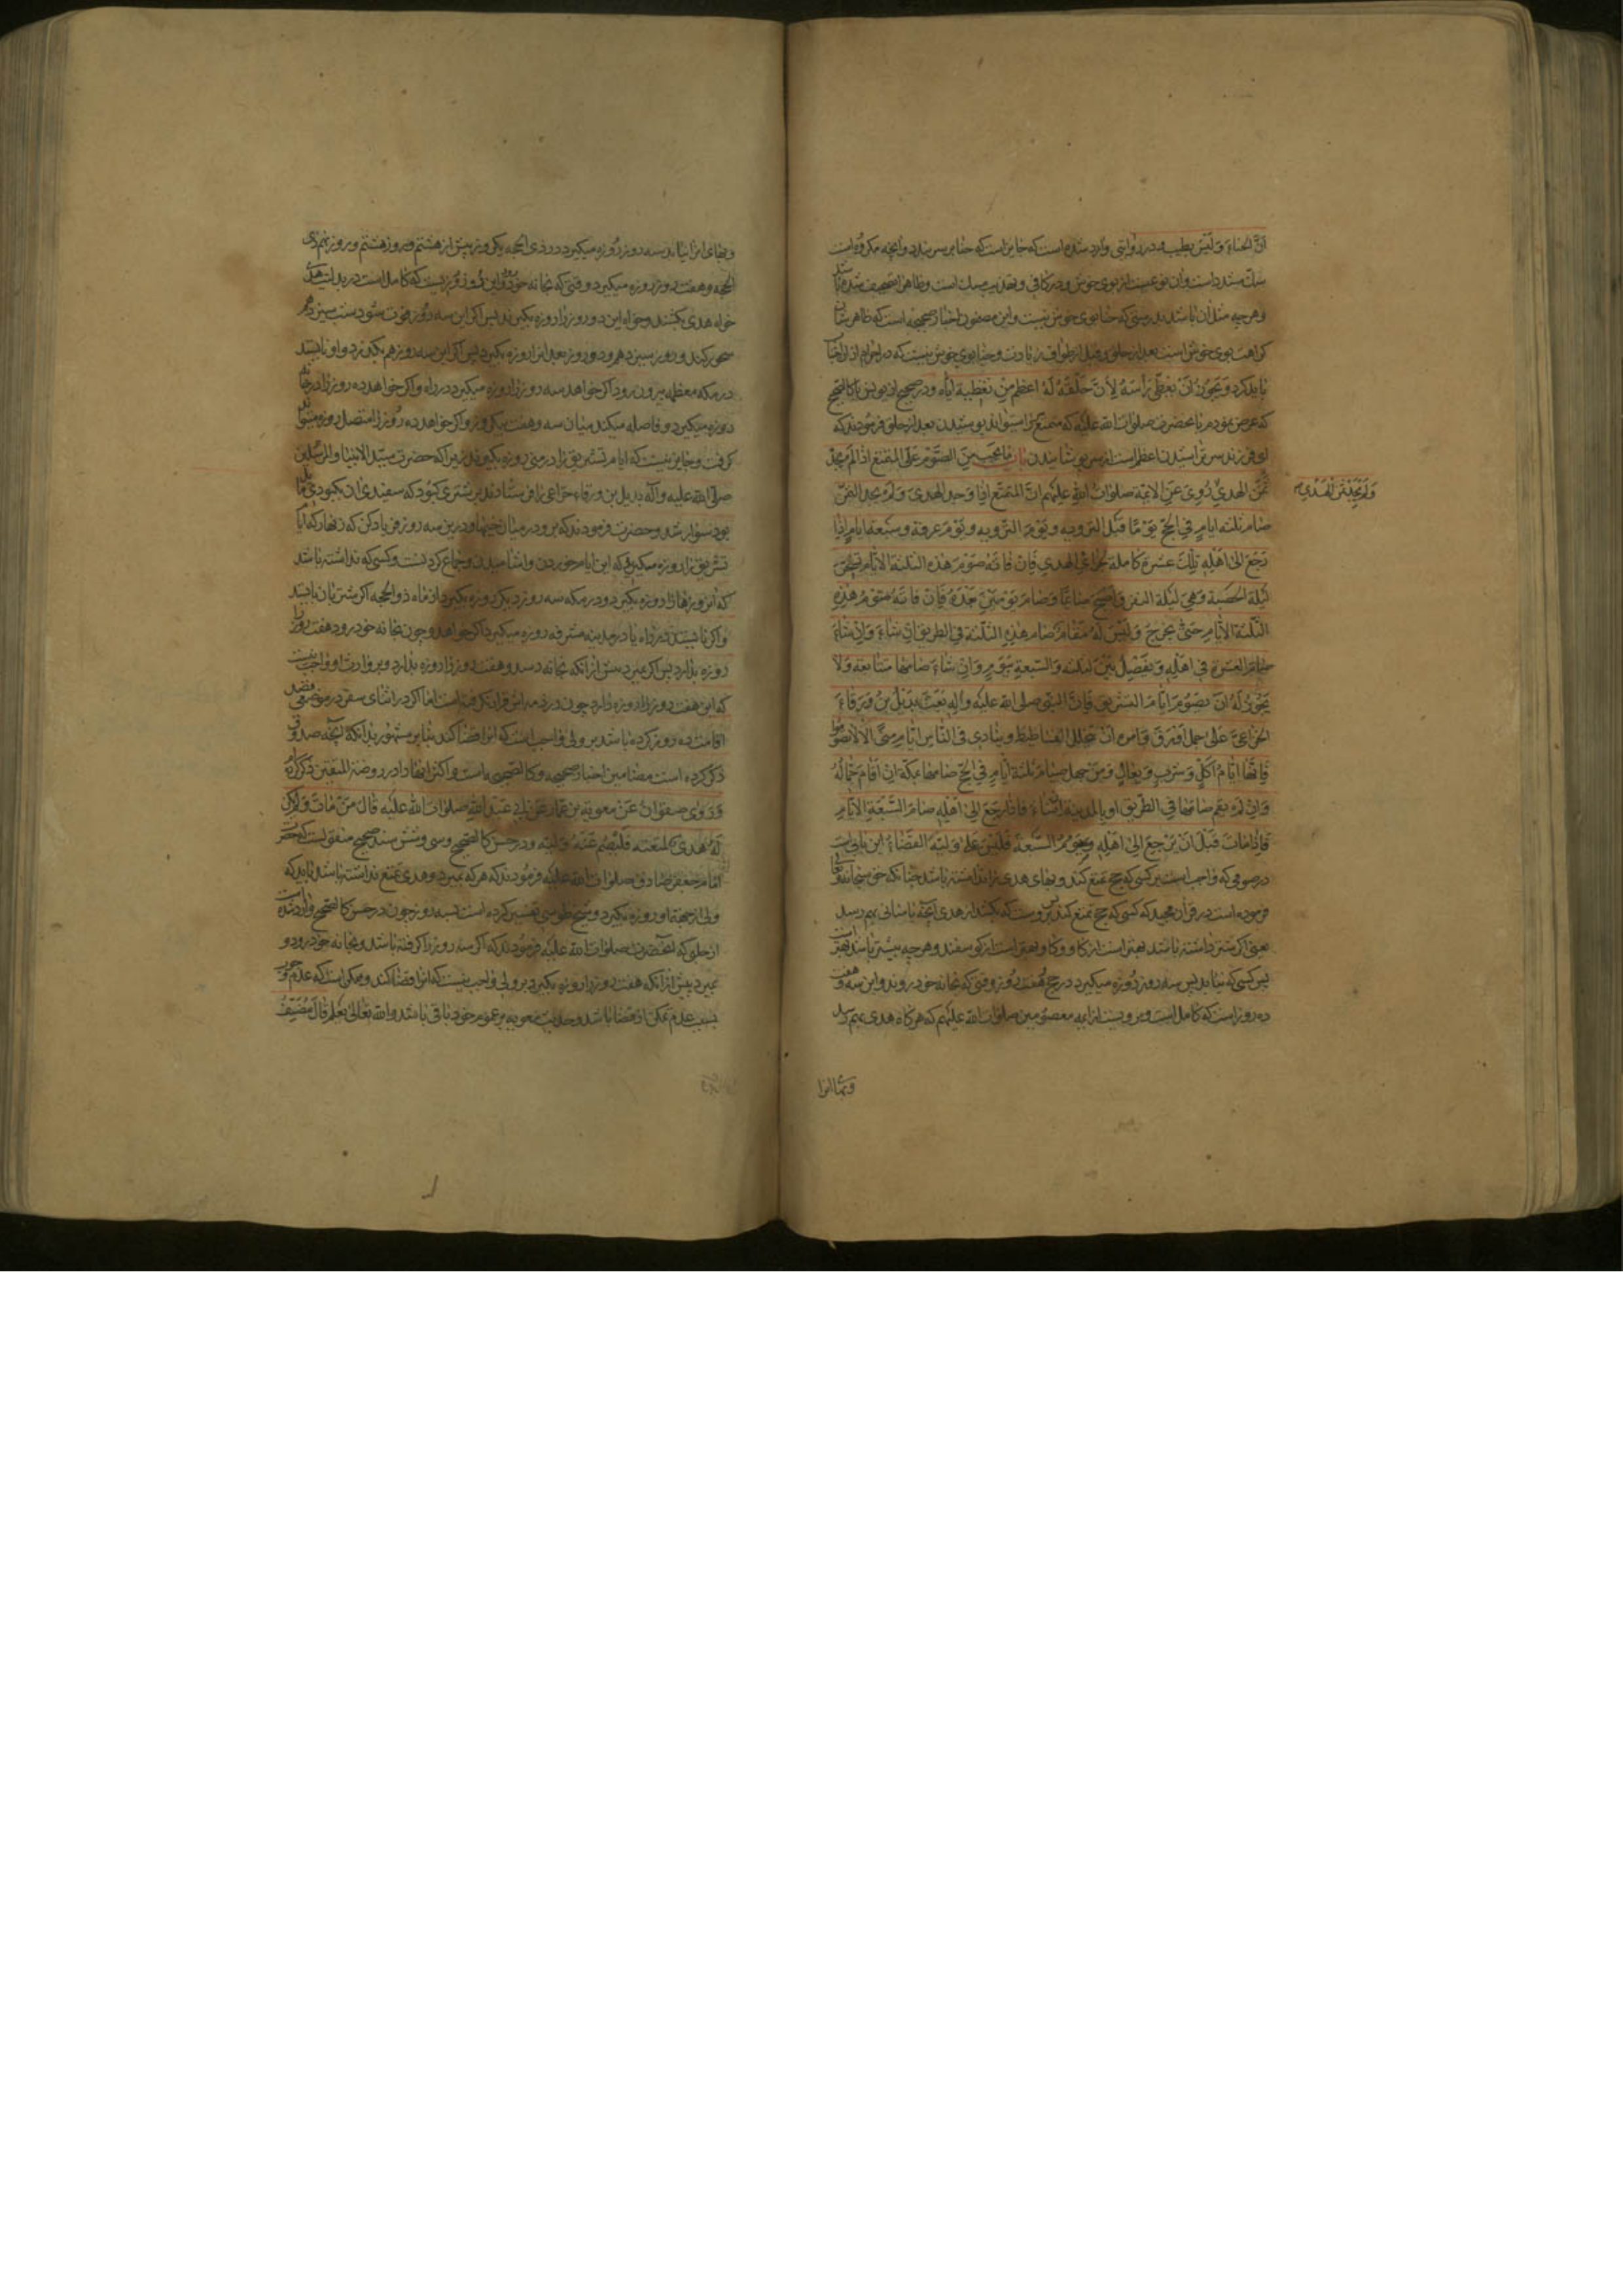 انّ الحناء وَلَيسَ بطیب و در روایتی وارد شده است که جایز است که حنا بر سر بندد و آنچه مکروه است
سك مسند داست و آن نوعیست از بوی خوش و در کافی و تهذیب مسك است و ظاهرا تصحیف شده باشد
و هر چه مثل آن باشد بدرستی که حنا بوی خوش نیست و این مضمون اخبار صحیحه است که ظاهرشان
کراهت بوی خوش است بعد از حلق و قبل از طواف زیارت و حنا بوی خوش نیست که در احرام از ان اجتنا
باید کرد وَيَجُوزُ اَنْ يُغَطِّى رَأسَهُ لِأنَّ حَلْقَهُ لَهُ اعظم مِن تغطيته اياه و در صحیح از یونس با کالصحیح
که عرض نمودم بآنحضرت صلوات الله علیه که متمتع سر را میتواند پوشیدن بعد از حلق فرمودند که
ای فرزند سر تراشیدن اعظم است از سر پوشانیدن باب مایجب مِنَ الصَّوْم عَلَى المتمتع اذا لَمْ يَجِدْ
ثَمَنَ الهدیِ رُوِیَ عَنِ الائمّة صلوات الله علیهم انّ المتمتع اِذا وَجد الهدی وَلَمْ یجد الثمَن
صٰام ثلثه ایامٍ فِی الحَجّ یَوْمًا قَبْلَ التروِیه وَیَوْمَ التّروِیه وَیَوْمَ عرفة وسَبعة ایامٍ اِذا
رَجَعَ اِلیٰ اَهْلِهِ تِلكَ عشرَة كاملة لجزاءِ الهدیِ فَاِنْ فاتَهُ صَوْمَ هٰذِه الثلثة الایّام تسحّر
لَیلة الحَصبة وَهِیَ لَیلة النفر وَاَصْبَحَ صٰائِمًا وَصٰامَ یَوْمَیْنِ بَعْدَهُ فَاِنْ فاتَهُ صَوْمُ هٰذِهِ
الثّلثة الایّام حَتّیٰ یَخْرُجَ وَلَیْسَ لَهُ مُقٰامٌ صٰام هٰذِهِ الثّلثة فی الطریق اِنْ شاءَ وَاِنْ شاءَ
صام العشرة فی اَهْلِهِ وَیفْصِلُ بَیْنَ الثلثة وَالسّبعةِ بِیَومٍ وَاِنْ شاءَ صٰامها متتابعة وَلا
یَجُوزُ لَهُ اَنْ یصُومَ اَیّامَ التشریق فَاِنَّ النّبی صلی الله علیه وآلِه بَعَثَ بُدَیل بْنَ وَرَقاءَ
الخزاعیّ عَلیٰ جمل اَوْرَق وَامره اَنْ یتخلل الفساطیط وینادی فی النّاس ایّام مِنی اَلا لا تصوموا
فَاِنَّهٰا اَیّامُ اَکْلٍ وَشربٍ وَبِعٰالٍ وَمَنْ جهل صیام ثلثة ایّامٍ فی الحَجّ صٰامها بمکّة اِنْ اَقامَ جَمّالُهُ
وَاِنْ لَمْ یقم صٰامها فی الطّریق او بالمدینة اِنْ شاءَ فَاِذا رَجَعَ اِلیٰ اَهْلِهِ صٰامَ السَّبْعَةِ الایّامِ
فَاِذا مٰاتَ قَبْلَ اَنْ یَرْجِعَ اِلیٰ اَهْلِهِ وَیَصُومُ السَّبعَة فَلَیْسَ عَلیٰ وَلِیّهِ القَضٰاءُ این بابی است
در صومی که واجب است بر کسی که حج تمتع کند و بهای هدی نداشته باشد چنانکه حق سبحانه و تعالی
فرموده است در قرآن مجید که کسی که حج تمتع کند پس بروست که بکشد از هدی آنچه بآسانی بهم رسد
یعنی اگر شتر داشته باشد بهتر است از گاو و گاو بهتر است از گوسفند و هر چه بیشتر باشد بهتر است
پس کسی که نیابد پس سه روز روزه میگیرد در حج و هفت روز وقتی که بخانه خود روند و این سه و هفت
ده روز است که کامل است و مرویست از ائمه معصومین صلوات الله علیهم که هرگاه هدی بهم رسد
وَلَمْ یَجِدْ ثَمَنَ الهَدی
وبهای انرا
وبهای انرا نیابد سه روز روزه میگیرد در ذی الحجه یکروز پیش از هشتم و روز هشتم و روز نهم ذی
الحجه و هفت روز روزه میگیرد وقتی که بخانه خود رود و این ده روز روزیست که کامل است در بدلیت هدی
خواه هدی بکشند و خواه این ده روز را روزه بگیرند پس اگر این سه روز فوت شود شب سیزدهم
سحور کند و روز سیزدهم و دو روز بعد انرا روزه بگیرد پس اگر این سه روز هم بگذرد و او نایستد
در مکه معظمه بیرون رود اگر خواهد سه روز را روزه میگیرد در راه و اگر خواهد ده روز را در خانه
روزه میگیرد و فاصله میکند میان سه و هفت بیکروز و اگر خواهد ده روز را متصل روزه میتواند
گرفت و جایز نیست که ایام تشریق را در منی روزه بگیرند زیرا که حضرت سیّد الانبیا و المرسلین
صلّی الله علیه و آله بدیل بن ورقاء خزاعی را فرستادند بر شتری کبود که سفیدی آن بکبودی مایل
بود سوار شد و حضرت فرمودند که برو در میان خیمها و درین سه روز فریاد کن که زنهار که ایام
تشریق را روزه میگیرید که این ایام خوردن و آشامیدن و جماع کردنست و کسی که ندانسته باشد
که این روزها را روزه بگیرد در مکه سه روز دیگر روزه بگیرد از ماه ذوالحجه اگر شتربان بایستد
و اگر نایستد در راه یا در مدینه مشرفه روزه میگیرد اگر خواهد و چون بخانه خود رود هفت روز را
روزه بدارد پس اگر بمیرد پیش از آنکه بخانه رسد و هفت روز را روزه بدارد بر وارث او واجب نیست
که این هفت روز را روزه دارد چون در ذمه اش قرار نگرفته است اما اگر در اثنای سفر در موضعی قصد
اقامت ده روز کرده باشد بر ولی واجب است که انرا قضا کند بنابر مشهور بدانکه آنچه صدوق
ذکر کرده است مضامین اخبار صحیحه و کالصحیحه است و اکثر آنها را در روضة المتقین ذکر کرده ام
وَرَویٰ صفوان عَنْ معویة بن عمّار عَنْ اَبی عَبْدِ اللهِ صلوات الله علیه قال مَنْ مٰاتَ وَلَمْ یکن
لَهُ هَدیٌ لمتعته فَلْیَصُم عَنْهُ وَلیّه و در حسن کالصحیح و سی و شش سند صحیح منقولست که حضرت
امام جعفر صادق صلوات الله علیه فرمودند که هر که بمیرد و هدی تمتع نداشته باشد باید که
ولی از جهة او روزه بگیرد و شیخ طوسی تفسیر کرده است بسه روز چون در حسن کالصحیح وارد شده است
از حلبی که آنحضرت صلوات الله علیه فرمودند که اگر سه روز را گرفته باشد و بخانه خود رود و
بمیرد پیش از آنکه هفت روز را روزه بگیرد بر ولی واجب نیست که انرا قضا کند و ممکن است که عدم وجوب
بسبب عدم تمکن از قضا باشد و حدیث معویه بر عموم خود باقی باشد والله تعالی یعلم قٰالَ مُصَنِّفُ